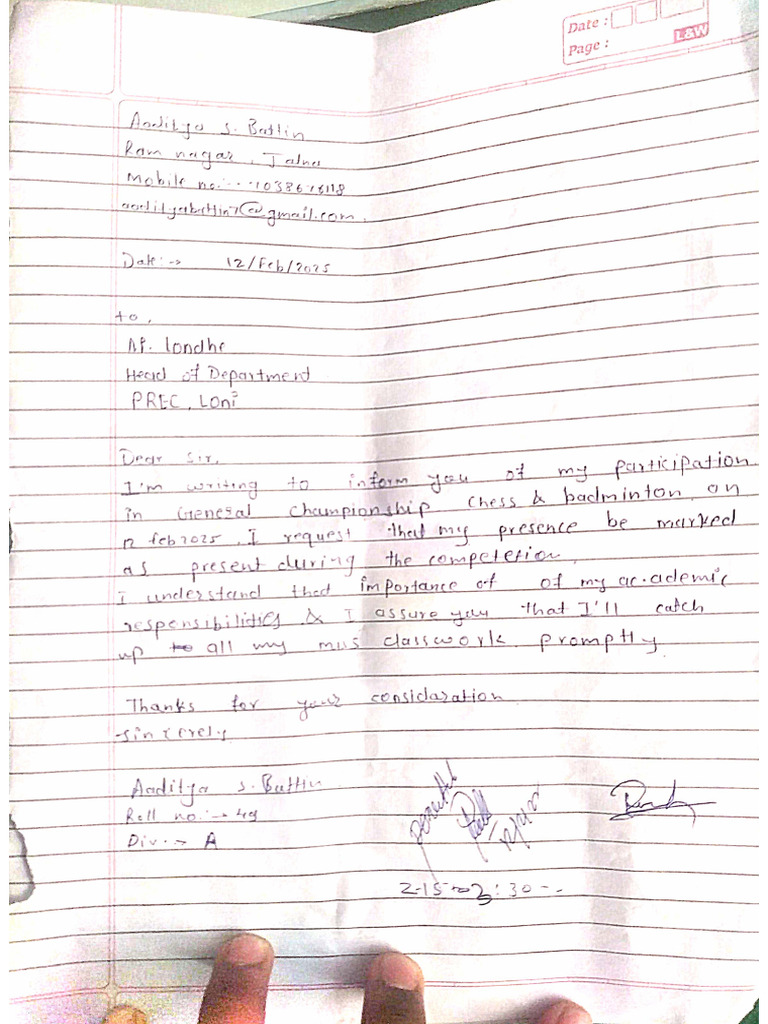 Date :
Page :
L&W
Aaditya S. Battin
Ram nagar, Jalna
Mobile no:-
aadityabattin7@gmail.com.
Date:-> 12/Feb/2025
to,
AP. Londhe
Head of Department
PREC, Loni
Dear Sir,
I'm writing to inform you of my participation
in General Championship Chess & badminton on
12 feb 2025. I request that my presence be marked
as present during the competetion.
I understand that importance of of my academic
responsibilities & I assure you that I'll catch
up to all my miss classwork promptly
Thanks for your considaration
sincerely
Aaditya S. Battin
Roll no:-> 49
Div:-> A
2-15 3:30